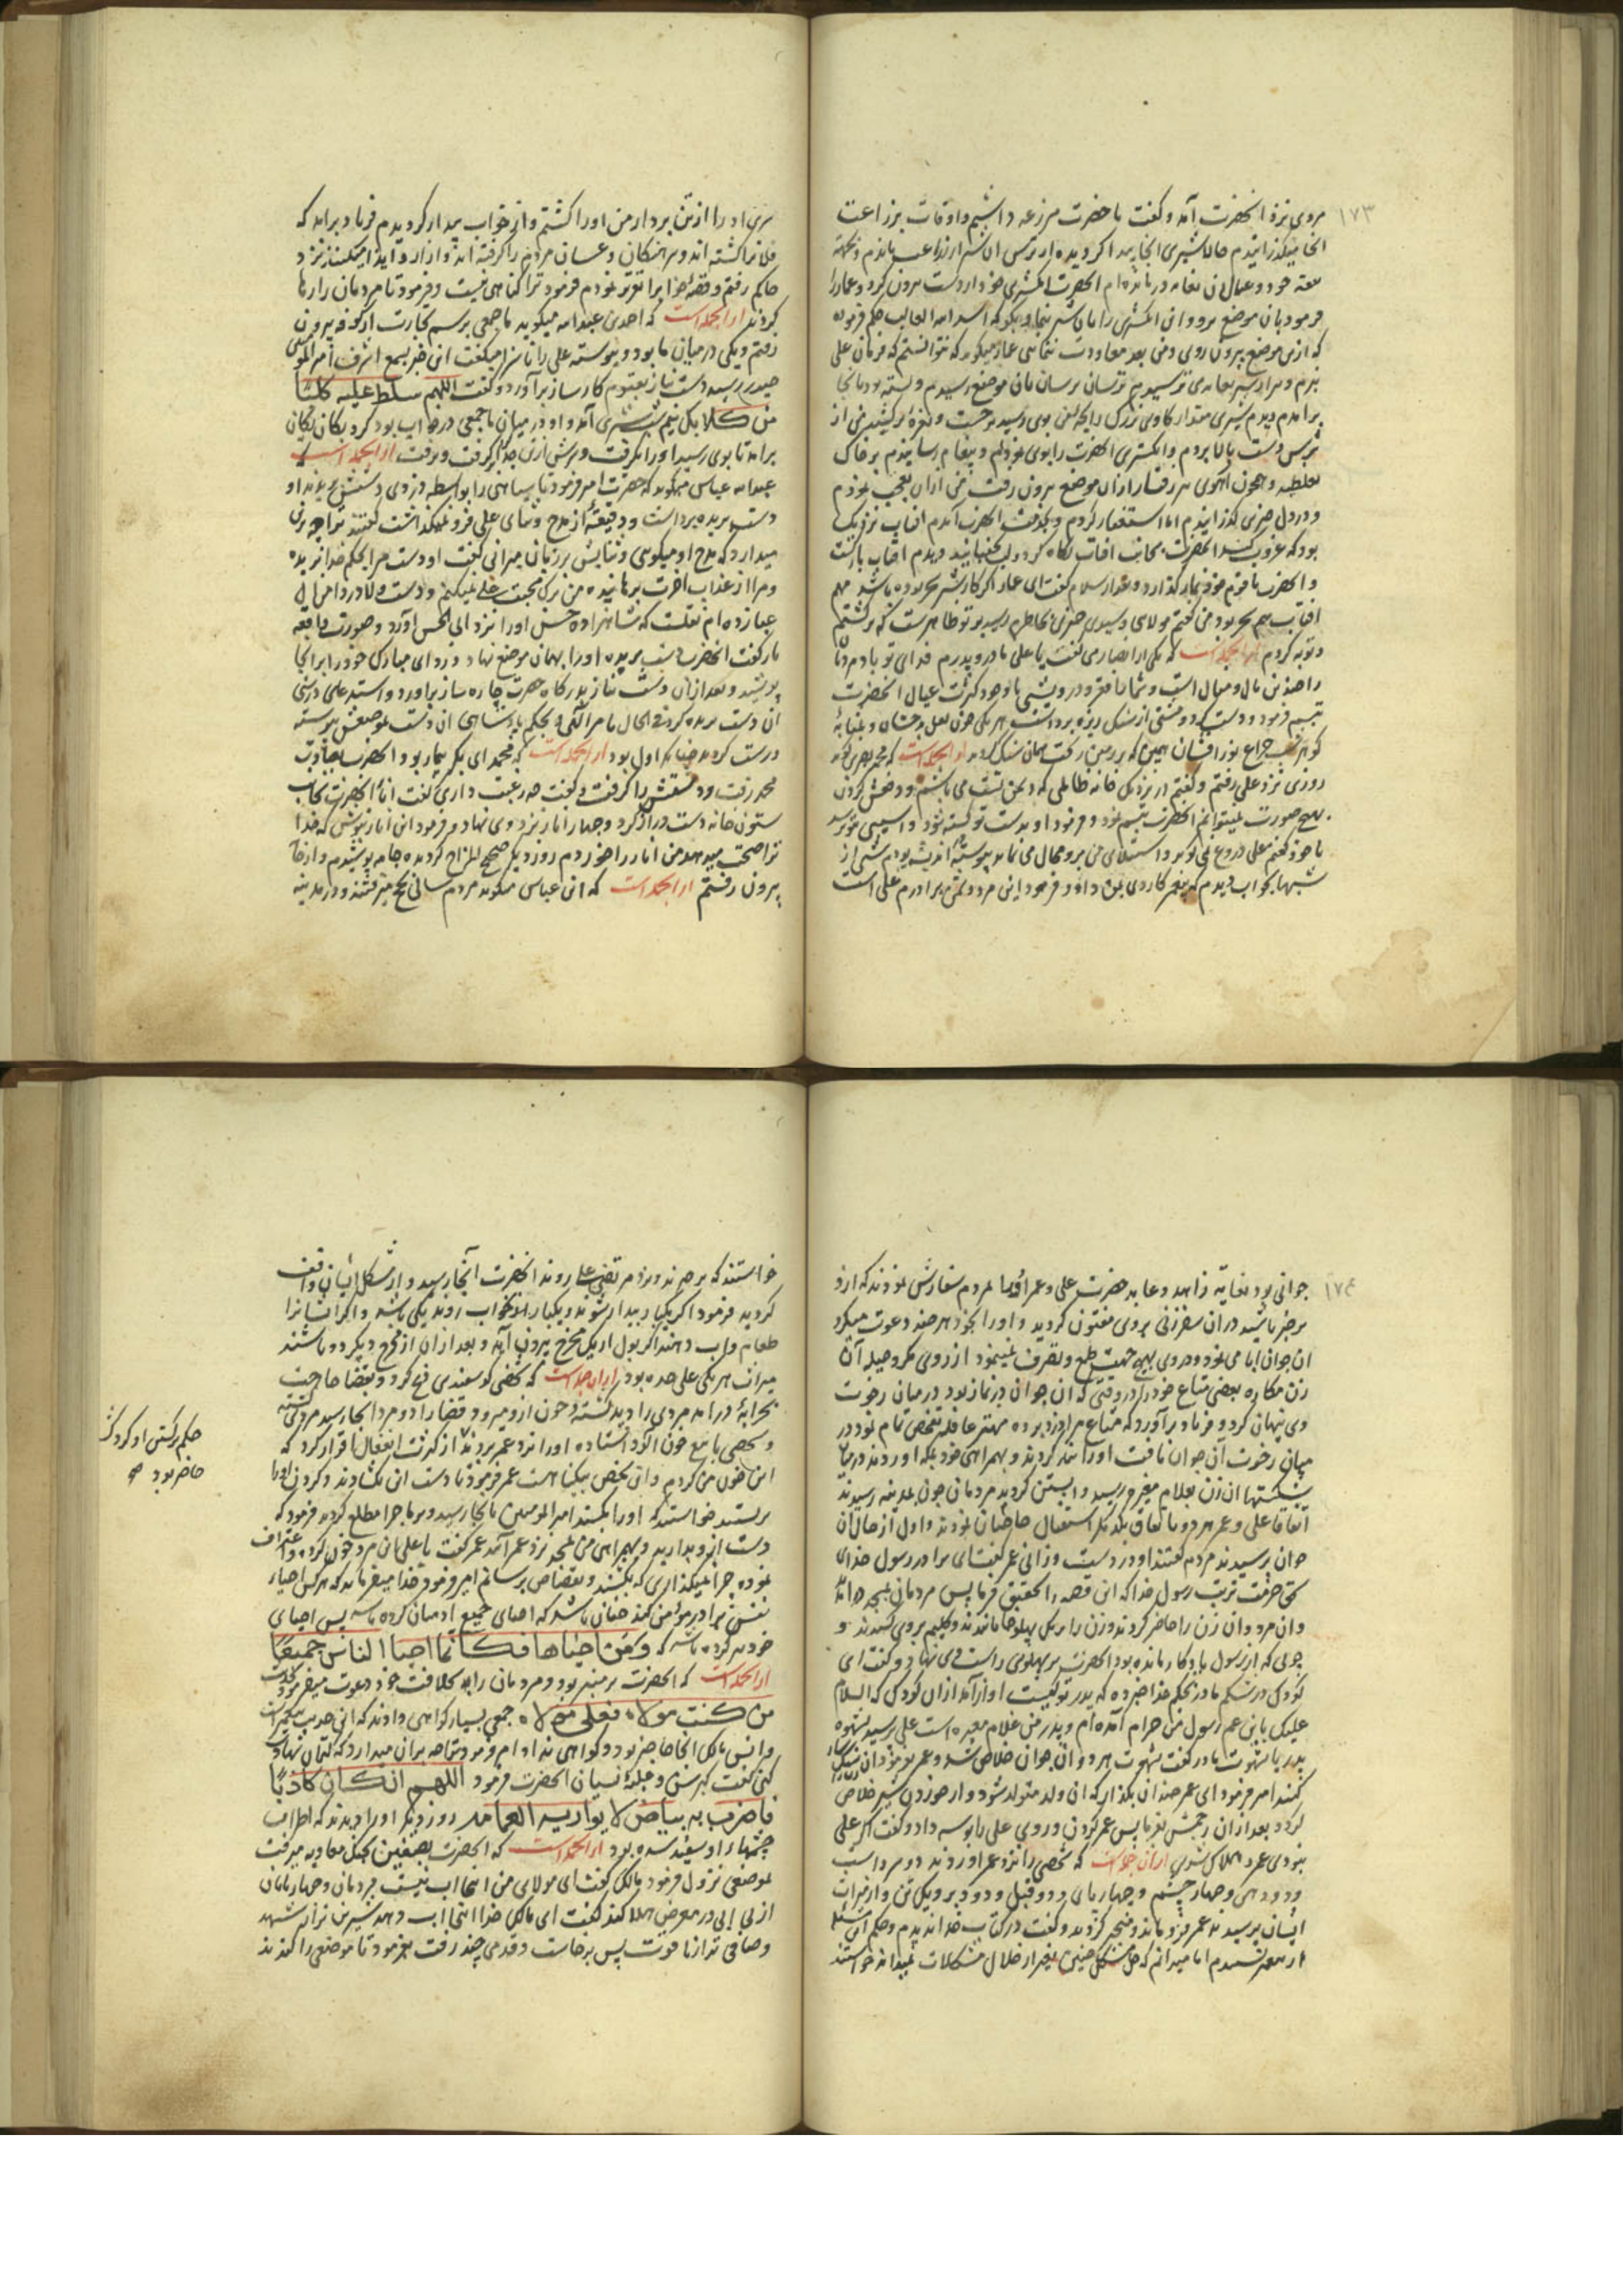 ۱۷۳
مروی نزد انحضرت آمد و کفت یا حضرت مزرعه داشتم و اوقات بزراعت
انجا میکذرانیدم حالا شیری انجا پیدا کردیده از ترس ان شیر از زراعت باز
خود و عیال ان بغایه درمانده ام انحضرت انکشتری خود از دست بیرون کرد و عمار را
فرمود بان موضع برو و این انکشتری را بان شیر بنما و بکو که اسد الله الغالب حکم فرموده
که ازین موضع بیرون روی و من بعد معاودت ننمایی عمار میکوید که نتوانستم که فرمان علی
نبرم و مرا از شیر بغایه می ترسیدم ترسان ترسان بان موضع رسیدم
برامدم دیدم شیری مقدار کاوی بزرک
بترس دست بالا بردم و انکشتری انحضرت را بوی نمودم و پیغام رسانیدم بر خاک
بغلطید و همچون اهوی از ان موضع بیرون رفت من ازان تعجب نمودم
و در دل چیزی کذرانیدم اما استغفار کردم و بخدمت انحضرت آمدم افتاب نزدیک
بود که غروب کند انحضرت بجانب افتاب نکاه کرد و لب بجنبانید دیدم افتاب بازکشت
و انحضرت با قوم خود نماز کذارد و بعد از سلام کفت ای عمار اکر کار شیر سحر بوده باشد مهم
افتاب هم سحر بود من کفتم مولای و سیدی چیزی بخاطرم رسید بر تو ظاهرست که برکشتم
و توبه کردم از انجمله است که یکی از انصار می کفت یا علی مادر و پدرم فدای تو باد مردمان
راضند بمال و منال است و شما با فقر و درویشی با وجود کثرت عیال انحضرت
تبسم فرمود و دست کرد و مشتی از سنک ریزه برداشت هر یکی چون لعل بدخشان و بمثابهٔ
کوهر شب چراغ نور افشان همین که بر زمین ریخت همان سنک کردید از انجمله است که محمد بصری کوید
روزی نزد علی رفتم و کفتم در نزدیکی خانه ظالمی که دشمن تست می باشم و دفعش کردن
بهیچ صورت نمیتوانم انحضرت تبسم نمود و فرمود او بدست تو کشته شود و اسیبی بتو نرسد
با خود کفتم علی دروغ نمی کوید و استیلای من برو محال می نماید پیوسته در اندیشه بودم شبی از
شبها بخواب دیدم که پیغمبر کاردی بمن داد و فرمود این مرد دشمن برادرم علی است
سری او را از تن بردار من او را کشتم و از خواب بیدار کردیدم فریاد برامد که
فلانرا کشته اند و سرهنکان و عسسان مردم را کرفته اند و ازار و ایذا میکنند نزد
حاکم رفتم و قصهٔ خواب را تقریر نمودم فرمود ترا کناهی نیست و فرمود تا مردمان را رها
کردند از انجمله است که احمد بن عبد الله میکوید با جمعی برسم تجارت از کوفه بیرون
رفتم و یکی در میان ما بود و پیوسته علی را ناسزا میکفت این خبر بسمع اشرف امیر المؤمنین
حیدر رسید دست نیاز بقیوم کارساز برآورد و کفت اللهم سلط علیه کلبا
من کلابک نیم شب شیری آمد و او در میان ما جمعی در خواب بود کرد یکان یکان
برامد تا بوی رسید او را بکرفت و سرش از تن جدا کرفت و برفت از انجمله است که
عبد الله عباس میکوید که حضرت امیر فرمود تا سیاهی را بواسطه دزدی دستش بریدند او
دست بریده برداشت و دقیقهٔ از مدح و ثنای علی فرو نمیکذاشت کفتند ترا چه بران
میدارد که مدح او میکوئی و ثنایش بر زبان میرانی کفت او دست مرا بحکم خدا بریده
و مرا از عذاب اخرت برهانیده من ترک محبت علی نمیکنم و دست ولا در دامن ال
عبا زده ام نقلست که شاهزاده حسن او را نزد ابی الحسن آورد و صورت واقعه
باز کفت انحضرت دست بریده او را بهمان موضع نهاد و ردای مبارک خود را بر انجا
پوشید و بعد از ان دست نیاز بدرکاه حضرت چاره ساز براورد و استدعای درستی
آن دست بریده کرد فی الحال بامر الهی و بحکم پادشاهی ان دست بموضعش پیوسته
درست کردید چنانکه اول بود از انجمله است که محمد ابی بکر بیمار بود انحضرت بعیادت
محمد رفت و دستش را کرفت و کفت چه رغبت داری کفت انار انحضرت بجانب
ستون خانه دست دراز کرد و چهار انار نزد وی نهاد و فرمود این انار بنوش که خدا
ترا صحت میدهد من انار را خوردم روز دیکر صحیح المزاج کردیده جامه پوشیدم و از خانه
بیرون رفتم از انجمله است که ابن عباس میکوید مردم بسالی بحج میرفتند و در مدینه
۱۷۴
جوانی بود بغایه زاهد و عابد حضرت علی و عمر او را بمردم سفارش نمودند که ازو
بر خبر باشید در ان سفر زنی بروی مفتون کردید و او را بخود هر چند دعوت میکرد
ان جوان ابا می نمود و در وی بهیچ جهت طمع و تصرف نمینمود از روی مکر و حیله آن
زن مکاره بعضی متاع خود را در وقتی که ان جوان در نماز بود در میان رخوت
وی پنهان کرد و فریاد برآورد که متاع مرا دزد برده مهتر قافله تفحص تمام نمود در
میان رخوت آن جوان یافت او را بند کردند و بهمراهی خود بمکه اوردند
ان زن بغلام مغیره رسید و ابستن کردید مردمان چون بمدینه رسیدند
اتفاقا علی و عمر هر دو باتفاق یکدیکر استقبال حاجیان نمودند و اول از حال ان
جوان پرسیدند مردم کفتند او دزدست و زانی عمر کفت ای برادر رسول خدای
بحق حرمت تربت رسول خدا که این قصه را تحقیق فرما پس مردمان بمسجد در آمدند
و ان مرد و ان زن را حاضر کردند و زن را بر یک پهلو خابانیدند و کلیم بروی کشیدند و
چوبی که از رسول یادکار مانده بود انحضرت بر پهلوی راست وی نهاد و کفت ای
کودک در شکم مادر بحکم خدا خبر ده که پدر تو کیست اواز آمد از ان کودک که السلام
علیک یا ابن عم رسول من حرام آمده ام و پدر من غلام مغیره است علی پرسید بشهوه
پدر یا بشهوت مادر کفت بشهوت هر دو ان جوان خلاص شد و عمر فرمود ان زن را سنکسار
کنند امیر فرمود ای عمر چندان بکذار که ان ولد متولد شود و از خوردن شیر خلاص
کردد بعد از ان رجمش بفرما پس عمر کردن و روی علی را بوسه داد و کفت اکر علی
نبودی عمر هلاک شدی از ان جمله است که شخصی را نزد عمر اوردند دو سر داشت
و دو دهن و چهار چشم و چهار پای و دو قبل و دو دبر و یک تن و از میراث
ایشان پرسیدند عمر فرو ماند و متحیر کردید و کفت در کتاب خدا ندیدم و حکم این مسئله
از پیغمبر نشنیدم اما میدانم که حل مشکل چنین بغیر از حلال مشکلات نمیداند
خواستند که برخیزند و نزد مرتضی علی روند انحضرت آنجا رسید و از شکل ایشان واقف
کردید فرمود اکر بیکبار بیدار شوند و بیکبار بخواب روند یکی باشد و اکر ایشانرا
طعام و اب دهند اکر بول از یک مخرج بیرون آید و بعد از ان از مخرج دیکر دو باشند
میراث هر یکی علی حده بود از ان جمله است که شخصی کوسفندی ذبح کرد و بقضا حاجت
بخرابهٔ در امد مردی را دید کشته و خون ازو میرود قضا را دو مرد انجا رسید مردی کشته
و شخصی با تیغ خون الود ایستاده او را نزد عمر بردند از کثرت انفعال اقرار کرد که
این خون من کردم و ان شخص بیکناهست عمر فرمود تا دست ان بکشادند و کردن او را
بربستند خواستند که او را بکشند امیر المومنین بانجا رسید و بر ماجرا مطلع کردید فرمود که
دست ازو بدارید و بهمراهی من بمسجد نزد عمر آمد عمر کفت یا علی این مرد خون کرده و اعتراف
نموده چرا نمیکذاری که بکشند و بقصاص برسانم امیر فرمود خدا میفرماید که هر کس احیاء
نفس برادر مؤمن کند چنان باشد که احیای جمیع ادمیان کرده باشد پس احیای
خود کرده باشد که و من احیاها فکانما احیا الناس جمیعا
از انجمله است که انحضرت بر منبر بود و مردمان را بخلافت خود دعوت میفرمود و کفت
من کنت مولاه فعلی مولاه جمعی بسیار کواهی دادند که این حدیث پیغمبر است
و انس مالک انجا حاضر بود و کواهی نداد امام فرمود ترا چه بران میدارد که کتمان شهادت
کنی کفت کبر سن و غلبهٔ نسیان انحضرت فرمود اللهم ان کان کاذبا
فاضرب به بیاض لا یواریه العمامه روز دیکر او را دیدند که اطراف
چشمهاء او سفید شده بود از انجمله است که انحضرت بصفین بجنک معاویه میرفت
بموضعی نزول فرمود مالک کفت ای مولای من اینجا اب نیست مردمان و چهارپایان
از بی ابی در معرض هلاکند کفت ای مالک خدا اینجا اب دهد شیرین تر از شهد
و صافی تر از یاقوت پس برخاست و قدمی چند رفت بفرمود تا موضعی را کندند
حکم برکشتن او کرد که
حاضر بود